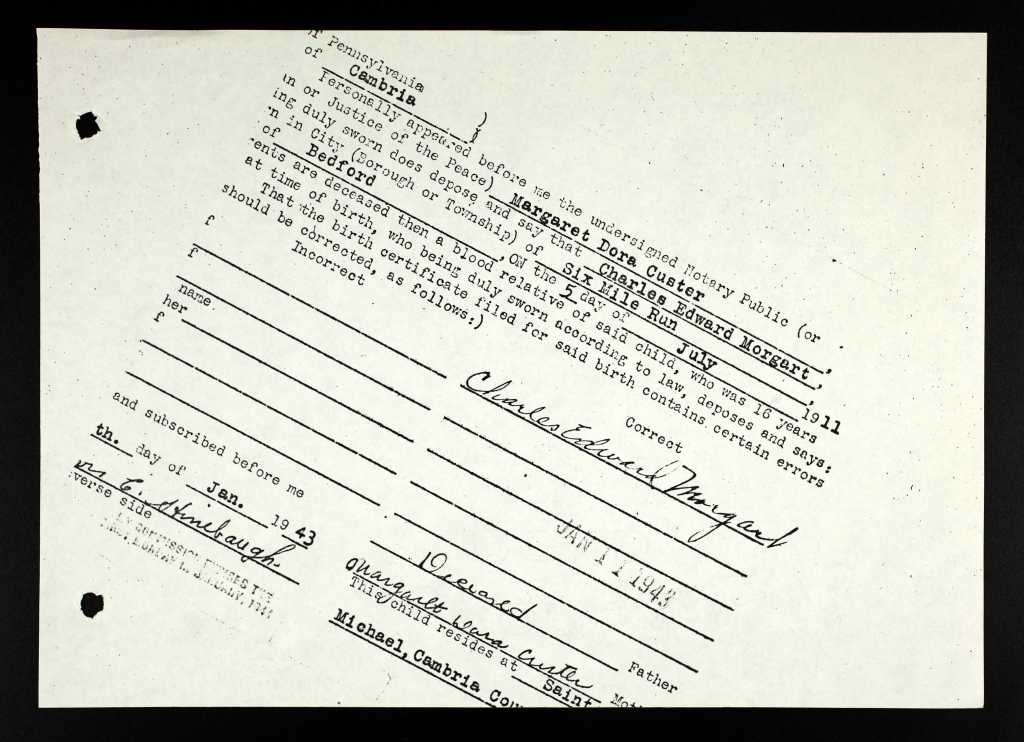 of Pennsylvania
of Cambria )
Personally appeared before me the undersigned Notary Public (or
or Justice of the Peace) Margaret Dora Custer,
ing duly sworn does depose and say that Charles Edward Morgart,
n in City (Borough or Township) of Six Mile Run,
of Bedford, on the 5 day of July 1911
ents are deceased then a blood relative of said child, who was 16 years
at time of birth, who being duly sworn according to law, deposes and says:
That the birth certificate filed for said birth contains certain errors
should be corrected, as follows:)
Incorrect Correct
f
f
name Charles Edward Morgart
her
f
JAN 11 1943
and subscribed before me
th. day of Jan. 1943
C. Stinebaugh
verse side
Deceased Father
Margaret Dora Custer
This child resides at Saint
Michael, Cambria